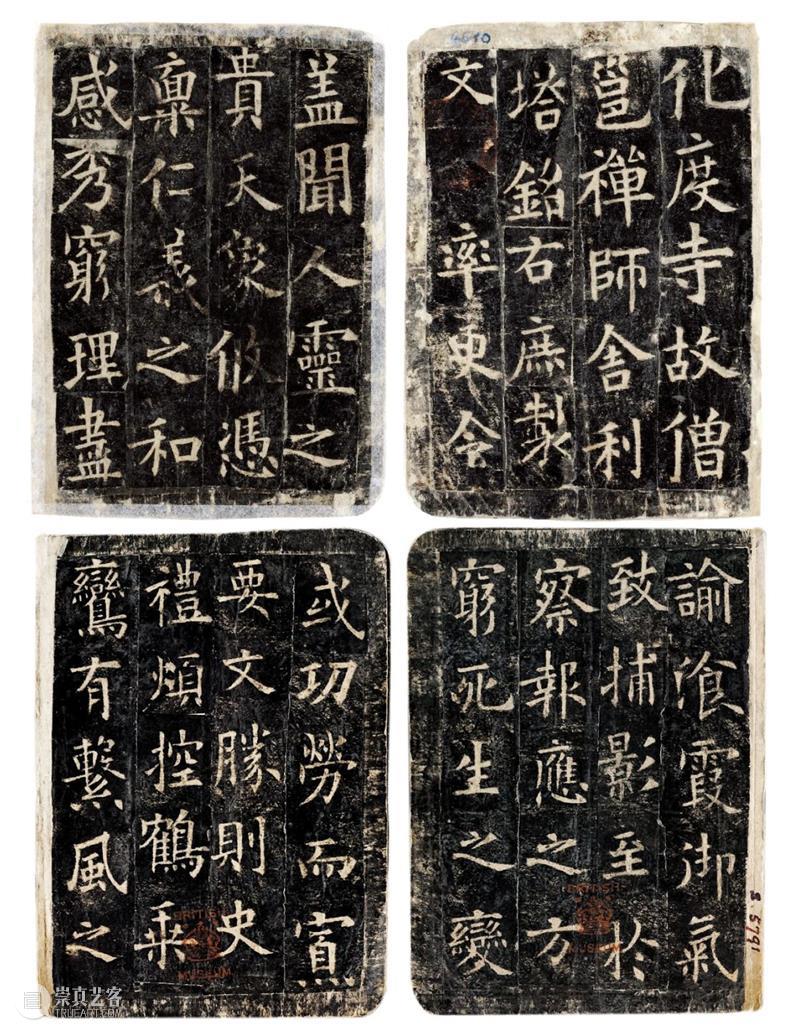 化度寺故僧
邕禪師舍利
塔銘右庶製
文 率更令
盖聞人靈之
貴天象攸憑
稟仁義之和
感秀窮理盡
或功勞而寡
要文勝則史
禮煩控鶴乗
鸞有繫風之
諭飡霞御氣
致捕影至於
察報應之方
窮死生之變
BRITISH
MUSEUM
BRITISH
MUSEUM
S.5791
崇真艺客
TRUEART.COM